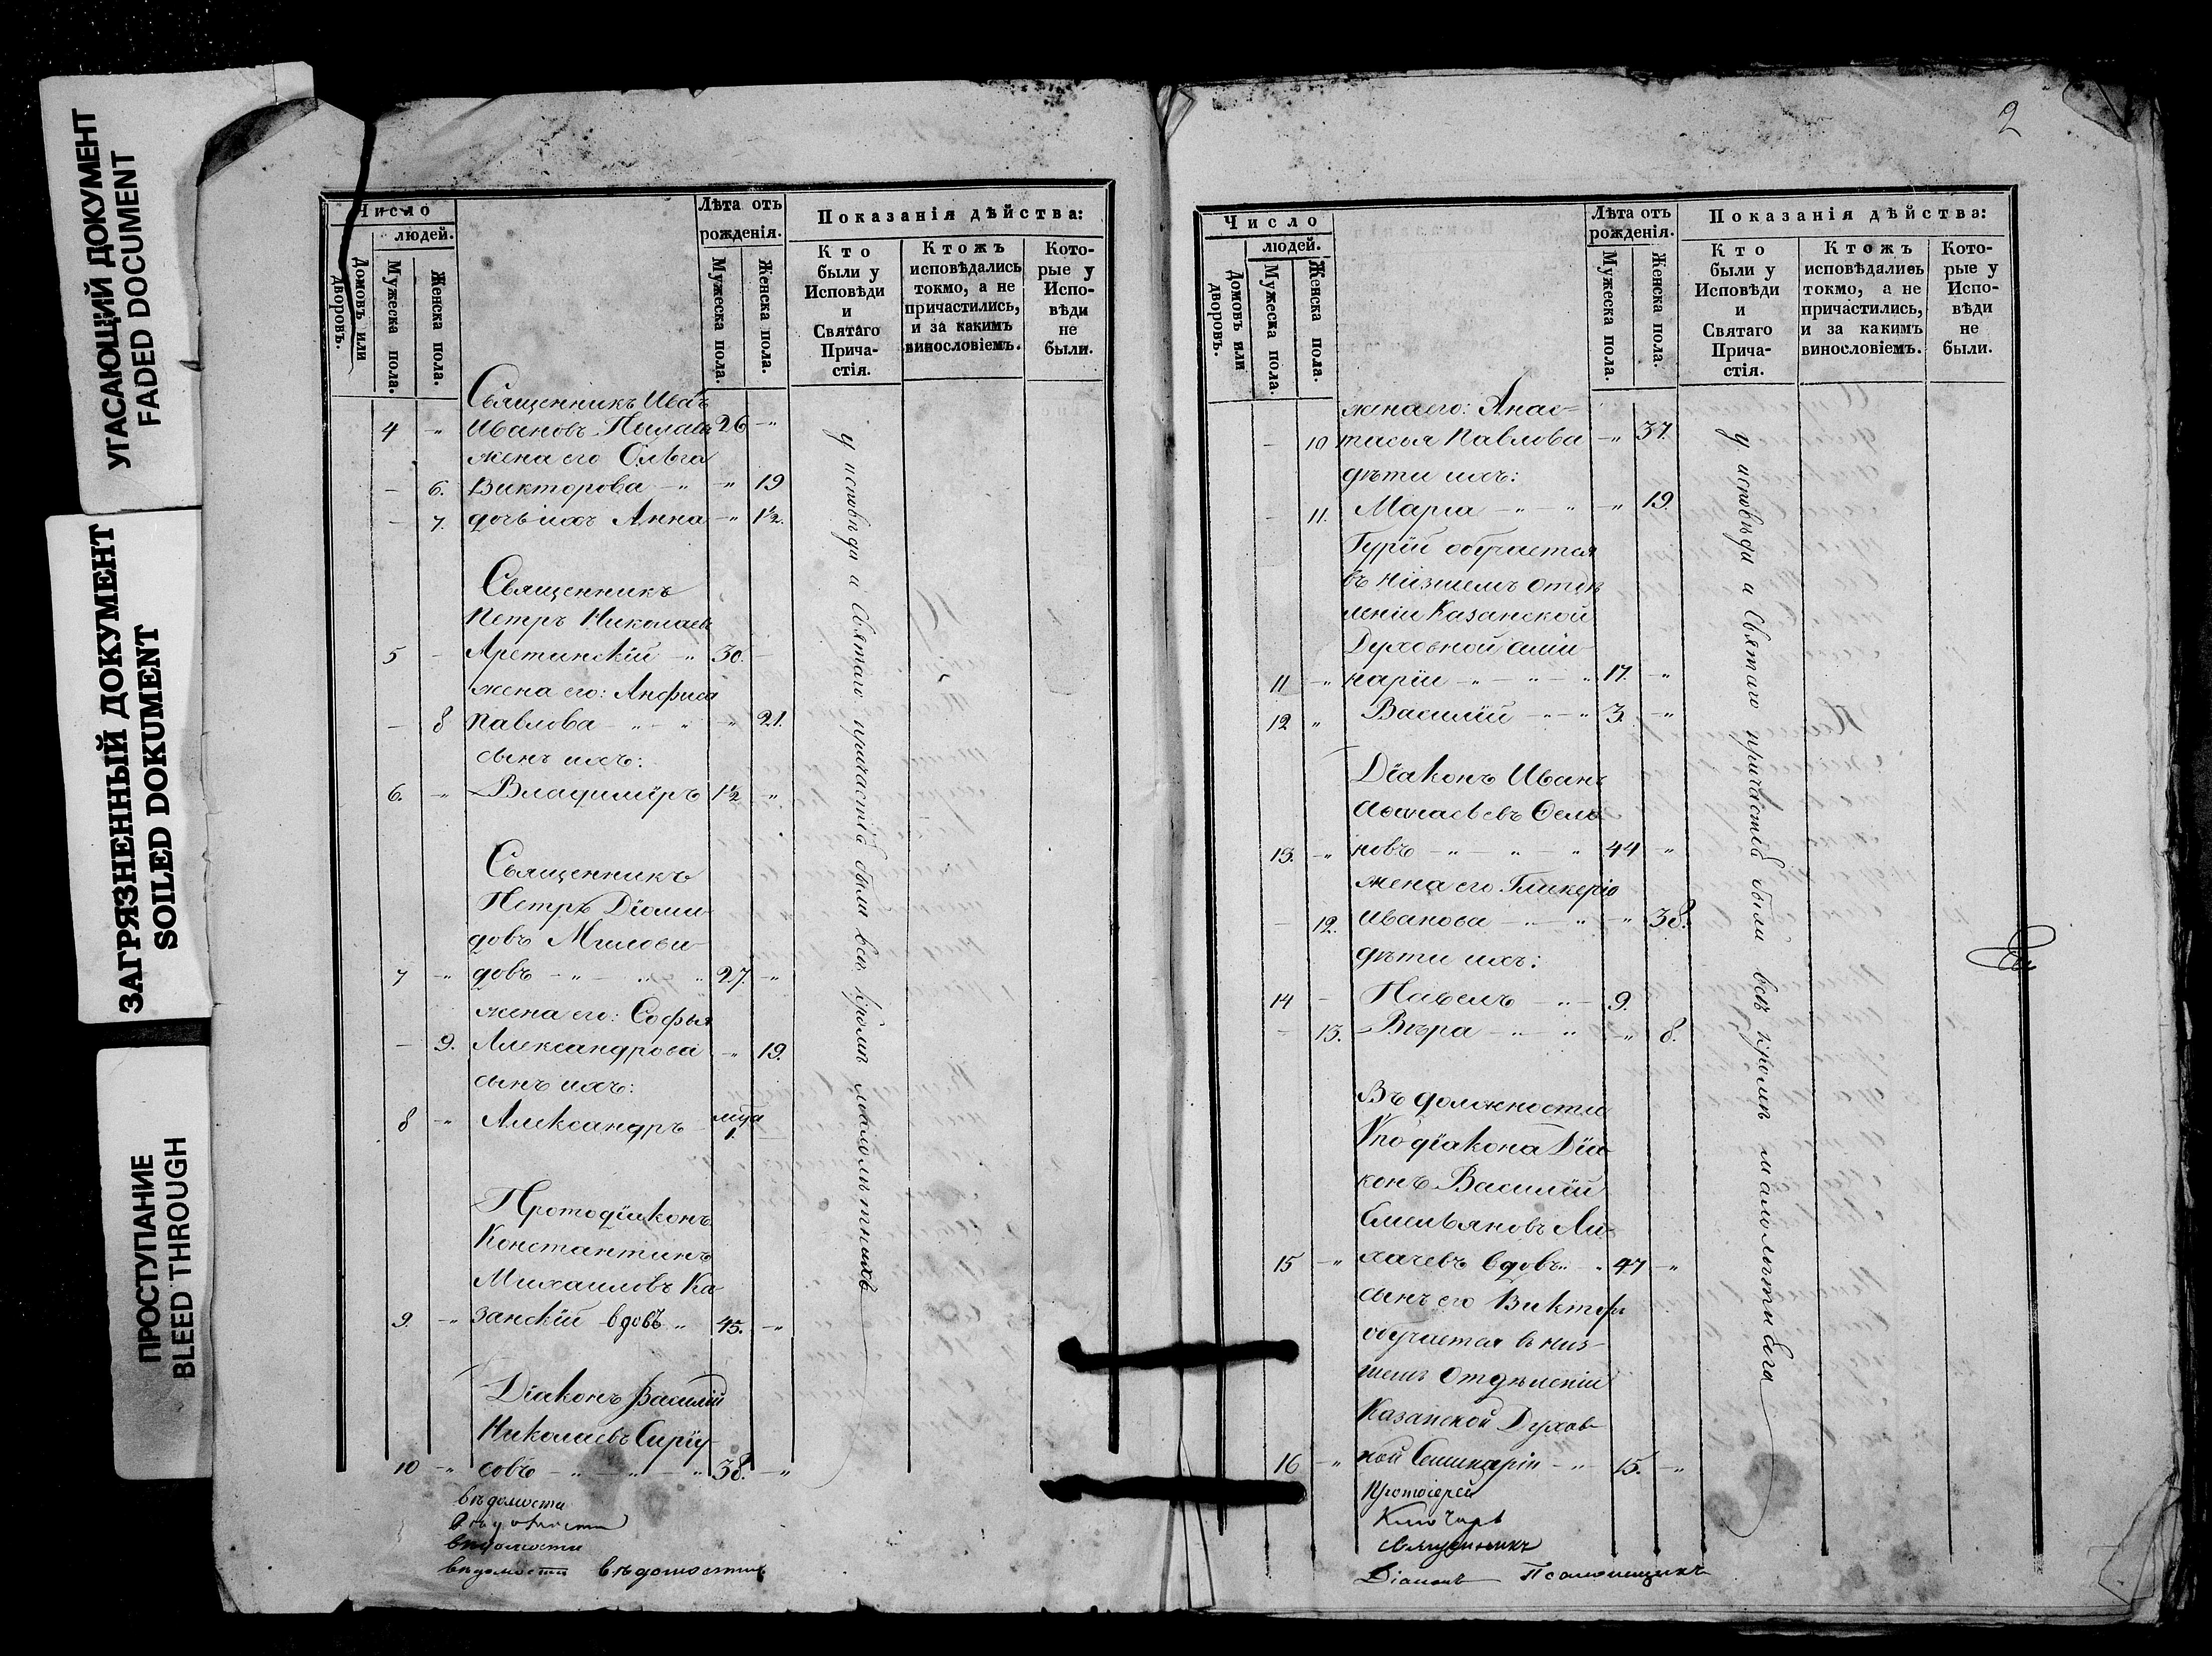 УГАСАЮЩИЙ ДОКУМЕНТ
FADED DOCUMENT
ЗАГРЯЗНЕННЫЙ ДОКУМЕНТ
SOILED DOKUMENT
ПРОСТУПАНИЕ
BLEED THROUGH
Число
людей.
Домовъ или дворовъ.
Мужеска пола.
Женска пола.
Лѣта отъ рожденія.
Мужеска пола.
Женска пола.
Показанія дѣйства:
Кто были у Исповѣди и Святаго Прича-стія.
Ктожъ исповѣдались токмо, а не причастились, и за какимъ винословіемъ.
Кото-рые у Испо-вѣди не были.
Священникъ Иванъ
4 " Ивановъ 26 "
жена его Ольга
- 6. Викторова - " " 19
- 7. дочь ихъ Анна - " 1½.
Священникъ
Петръ Николаевъ
5 - Аретинскій - " 30. -
жена его: Анфиса
- 8 Павлова - " - " " 21.
сынъ ихъ:
6. " Владиміръ 1½ "
Священникъ
Петръ Діоми-
довъ Милови-
7 " довъ - " - " " 27. "
жена его: Софья
- 9. Александрова - " 19.
сынъ ихъ:
8 " Александръ мца 1.
Протодіаконъ
Константинъ
Михаиловъ Ка-
9. " занскій вдовъ " 45. "
Діаконъ Василій
Николаевъ
10 " совъ - " - " - " 38. "
у исповѣди и Святаго причастія были всѣ кромѣ малолѣтнихъ
вѣдомости
вѣдомости
вѣдомости
вѣдомости вѣдомостямъ
2
Число
людей.
Домовъ или дворовъ.
Мужеска пола.
Женска пола.
Лѣта отъ рожденія.
Мужеска пола.
Женска пола.
Показанія дѣйства:
Кто были у Исповѣди и Святаго Прича-стія.
Ктожъ исповѣдались токмо, а не причастились, и за какимъ винословіемъ.
Кото-рые у Испо-вѣди не были.
жена его: Анас=
- 10 тасья Павлова - " 37.
дѣти ихъ:
- 11. Марія - " - " " 19.
Гурій обучается
въ низшемъ отдѣ
леніи Казанской
Духовной Семи
11 " наріи - " - " - " 17. "
12 " Василій - " - " 3. "
Діаконъ Иванъ
Аѳанасьевъ
13. " новъ - " - " - " 44 "
жена его Гликерія
- 12. Иванова - " - " " 38.
дѣти ихъ:
14 - Павелъ - " - 9.
- 13. Вѣра - " - " " 8.
Въ должности
Уподіакона Діа-
конъ Василій
Емельяновъ Ли-
15 " хачевъ вдовъ " " 47 "
сынъ его Викторъ
обучается в низ-
шемъ отдѣленіи
Казанской Духов-
16 " ной Семинаріи - " - 15. "
у исповѣди и Святаго причастія были всѣ кромѣ малолѣтняго
Протоіерей
Ключарь
священникъ
Діаконъ Псаломщикъ